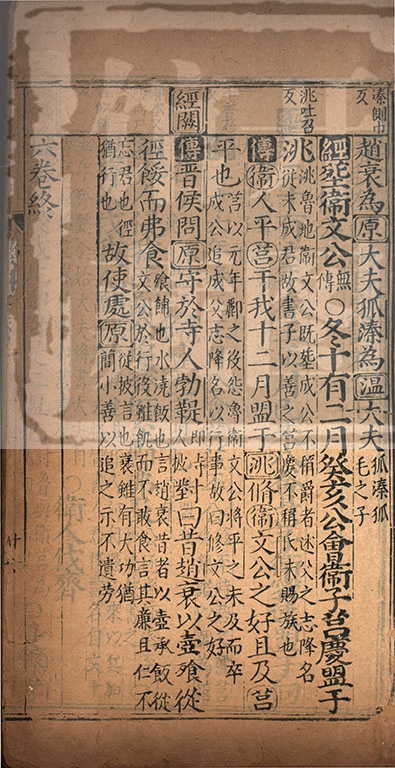 溱側巾反
趙衰為原大夫狐溱為溫大夫狐溱狐毛之子
經塟衛文公無傳○冬十有二月癸亥公會衛子莒慶盟于
洮吐召反
洮洮魯地衛文公既塟成公不稱爵者述父之志降名從未成君故書子以善之莒慶不稱氏未賜族也
傳衛人平莒于我十二月盟于洮脩衛文公之好且及莒
平也莒以元年酈之役怨魯衛文公將平之未及而卒成公追成父志降名以行事故曰修文公之好
經闕
傳晉侯問原守於寺人勃鞮即寺人披對曰昔趙衰以壺飱從
徑餒而弗食飱餔也水澆飯也言趙衰昔者以壺承飯從文公於行役雖飢而不敢食言其廉且仁不
忘君也徑猶行也故使處原從披言也衰雖有大功猶簡小善以追之示不遺勞
六卷終